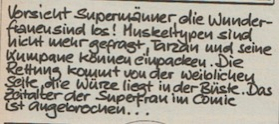 Vorsicht Supermänner, die Wunder-
frauen sind los! Muskeltypen sind
nicht mehr gefragt, Tarzan und seine
Kumpane können einpacken. Die
Rettung kommt von der weiblichen
Seite, die Würze liegt in der Büste. Das
Zeitalter der Superfrau im Comic
ist angebrochen...